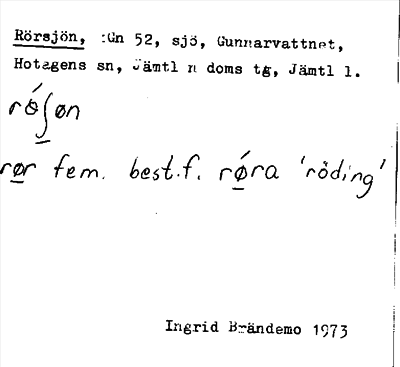 Rörsjön, :Gn 52, sjö, Gunnarvattnet,
Hotagens sn, Jämtl n doms tg, Jämtl l.
rǿʃøn
rør fem. best.f. rǿra 'röding'
Ingrid Brändemo 1973